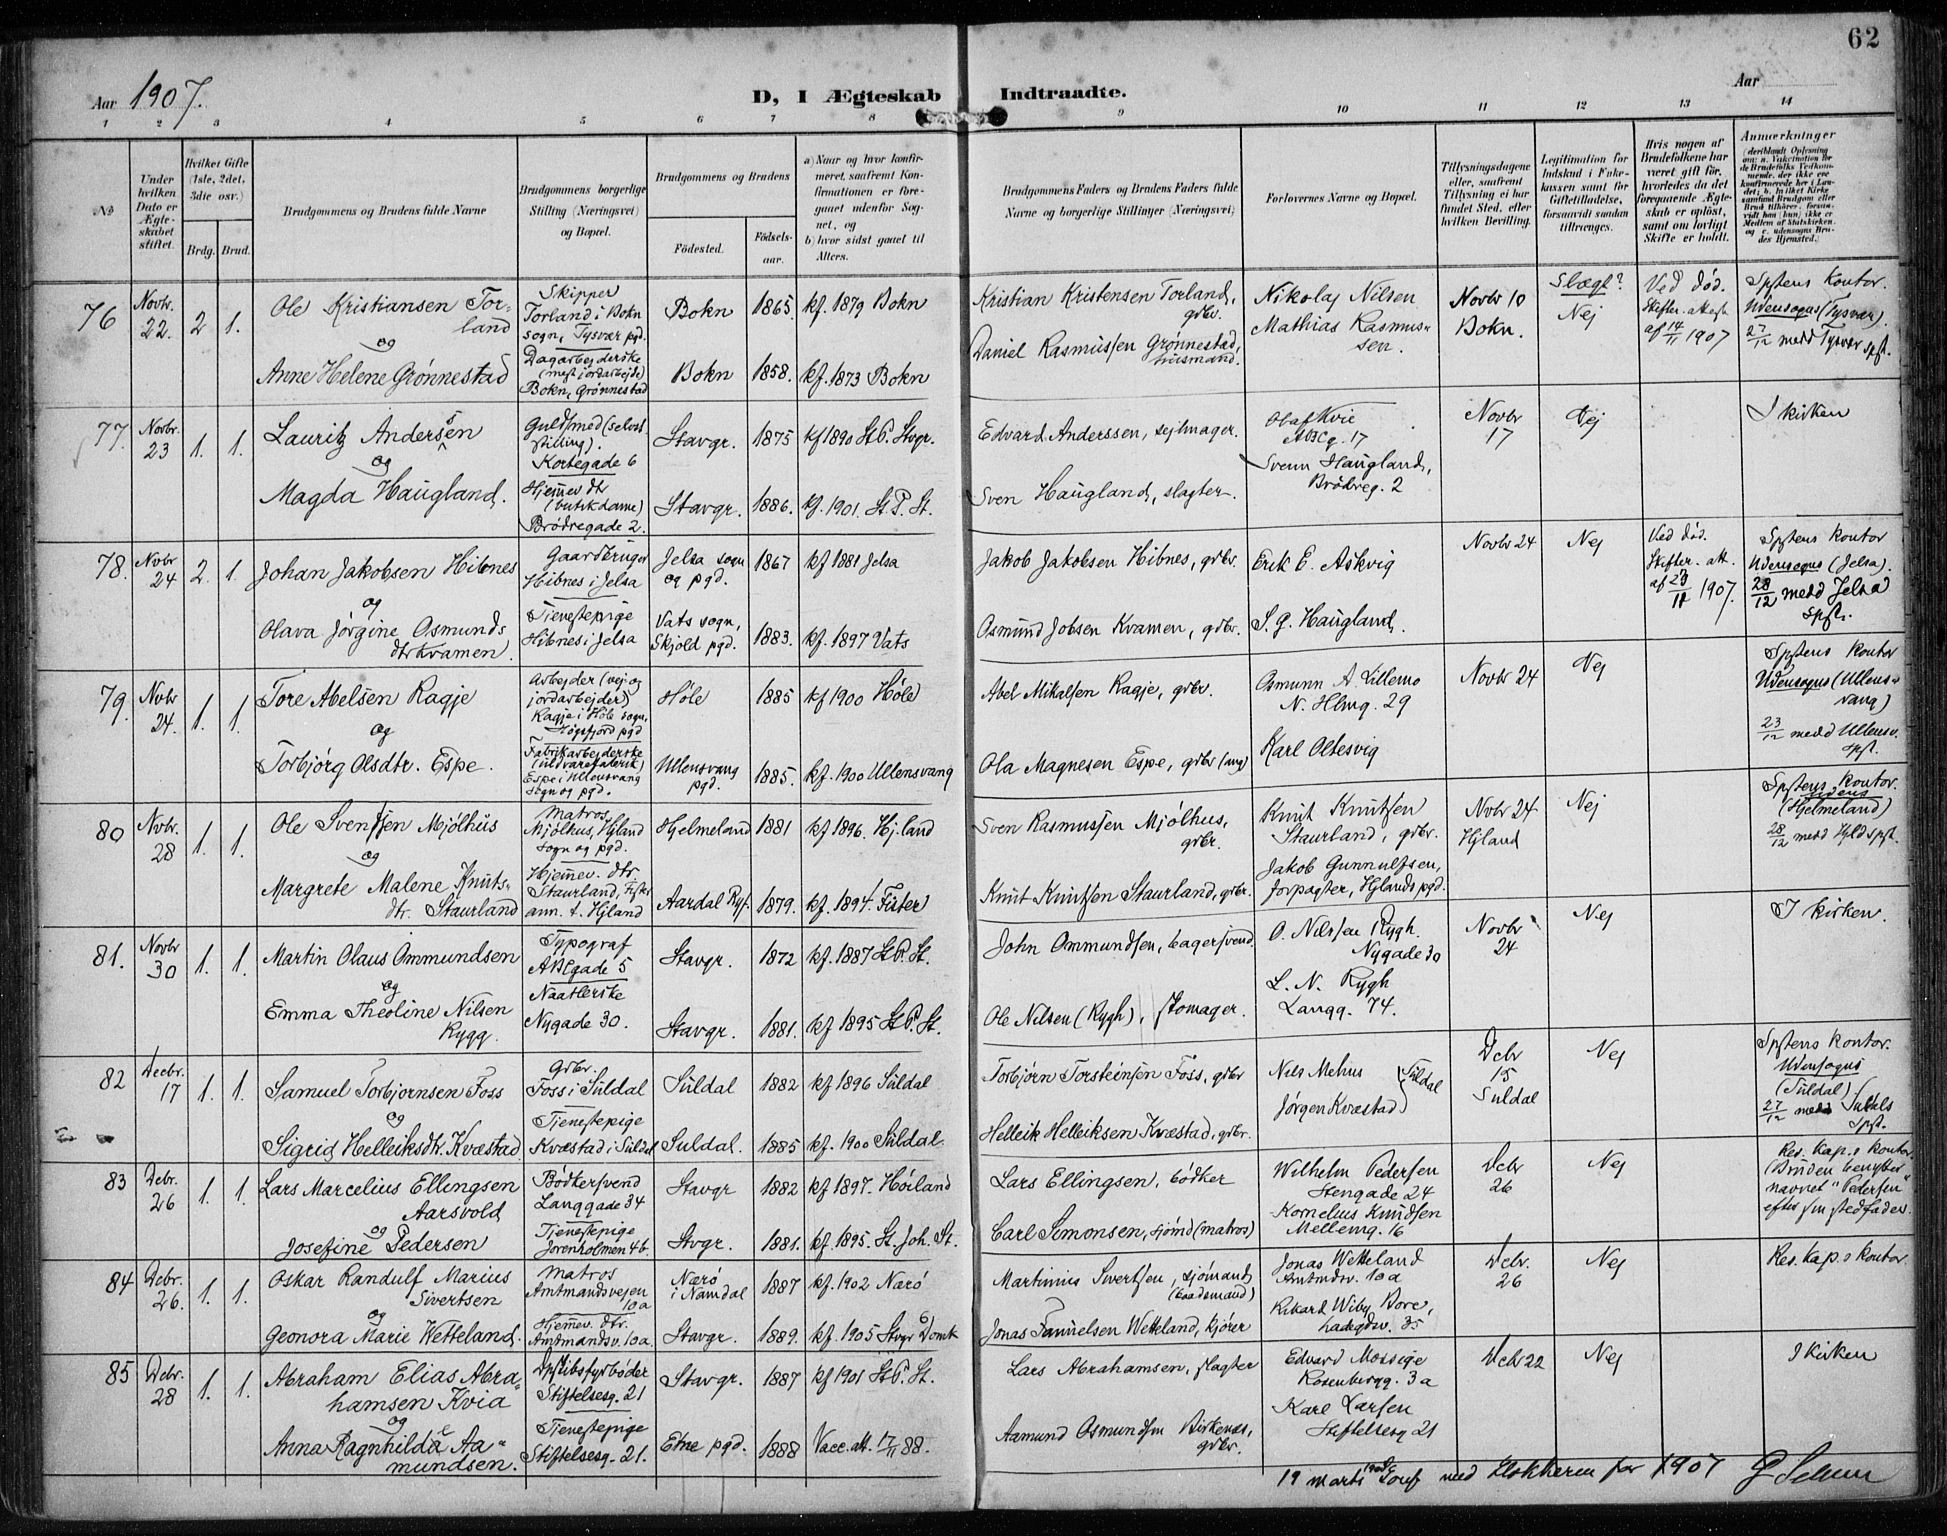 62
Aar 1907.
D, I Ægteskab Indtraadte.
Aar
1 2 3 4 5 6 7 8 9 10 11 12 13 14
№
Under hvilken Dato er Ægteskabet stiftet.
Hvilket Gifte (1ste, 2det, 3die osv.)
Brdg. Brud.
Brudgommens og Brudens fulde Navne
Brudgommens borgerlige Stilling (Næringsvei) og Bopæl.
Brudgommens og Brudens
Fødested.
Fødsels-aar.
a) Naar og hvor konfirmeret, saafremt Konfirmationen er foregaaet udenfor Sognet, og
b) hvor sidst gaaet til Alters.
Brudgommens Faders og Brudens Faders fulde Navne og borgerlige Stillinger (Næringsvei)
Forlovernes Navne og Bopæl.
Tillysningsdagene eller, saafremt Tillysning ei har fundet Sted, efter hvilken Bevilling.
Legitimation for Indskud i Enkekassen samt for Giftetilladelse, forsaavidt saadan tiltrænges.
Hvis nogen af Brudefolkene har været gift før, hvorledes da det foregaaende Ægteskab er opløst, samt om lovligt Skifte er holdt.
Anmærkninger
76 Novbr. 22. 2 1.
Ole Kristiansen Torland
og
Anne Helene Grønnestad
Skipper
Torland i Bokn
sogn, Tysvær pgd.
Dagarbejderske
(mest jordarbejde)
Bokn, Grønnestad
Bokn 1865. kf. 1879 Bokn
Bokn 1858. kf. 1873 Bokn
Kristian Kristensen Torland, grbr.
Daniel Rasmussen Grønnestad, husmand.
Nikolaj Nilsen
Mathias Rasmussen.
Novbr 10
Bokn.
Slægt?
Nej
Ved død.
Skifter. attest
af 14/11 1907
Spstens kontor.
Udensogns (Tysvær).
27/12 medd Tysvær spst.
77. Novbr. 23 1. 1.
Lauritz Anderssen
og
Magda Haugland.
Guldsmed (selvst. stilling).
Kortegade 6
Hjemmev. dtr
(butikdame)
Brødregade 2.
Stavgr. 1875 kf 1890 St. P. Stvgr.
Stavgr. 1886. kf. 1901. St. P. St.
Edvard Anderssen, sejlmager.
Sven Haugland, slagter.
Olaf Kvie
ABCg. 17
Svenn Haugland,
Brödreg. 2
Novbr 17
Nej
I kirken
78. Novbr 24 2. 1.
Johan Jakobsen Hibnes
og
Olava Jørgine Osmunds
dtr Kvamen.
Gaardbruger
Hibnes i Jelsa
Tienestepige
Hibnes i Jelsa
Jelsa sogn og pgd. 1867 kf 1881 Jelsa
Vats sogn, Skjold pgd. 1883. kf. 1897 Vats
Jakob Jakobsen Hibnes, grbr.
Osmund Jobsen Kvamen, grbr.
Erik E. Askvig
S. G. Haugland.
Novbr 24 Nej
Ved død.
Skifter. att.
af 23/11 1907.
Spstens kontor
Udensogns (Jelsa).
28/12 medd Jelsa
Spst.
79. Novbr 24. 1. 1.
Tore Abelsen Ragje
og
Torbjørg Olsdtr. Espe.
Arbejder (vej og
jordarbejder)
Ragje i Høle sogn,
Høgsfjord pgd
Fabrikarbejderske
(uldvarefabrik)
Espe i Ullensvang
sogn og pgd.
Høle 1885 kf 1900 Høle
Ullensvang pgd. 1885. kf. 1900 Ullensvang
Abel Mikalsen Ragje, grbr.
Ola Magnesen Espe, grbr (ung)
Osmunn A. Lillemo
N. Hlmg. 29
Karl Oltesvig
Novbr 24 Nej
Spstens kontor
Udensogns (Ullensvang)
23/12 medd Ullensv. spst.
80 Novbr. 28 1. 1.
Ole Svendsen Mjölhus
og
Margrete Malene Knuts-
dtr. Staurland
Matros
Mjölhus, Hjland
sogn og pgd.
Hjemmev. dtr.
Staurland, Fister
ann. t. Hjland
Hjelmeland 1881 kf. 1896. Hj.land
Aardal Ryf. 1879. kf. 1894. Fister
Sven Rasmussen Mjölhus, grbr.
Knut Knutsen Staurland, grbr.
Knut Knutsen
Staurland, grbr.
Jakob Gunnulfsen,
forpagter, Hjlands pgd.
Novbr 24
Hjland
Nej
Spstens kontor.
udens
(Hjelmeland)
28/12 medd Hjld spst.
81. Novbr 30 1. 1.
Martin Olaus Ommundsen
og
Emma Theoline Nilsen
Rygg.
Typograf
ABCgade 5
Naatlerske
Nygade 30.
Stavgr. 1872 kf. 1887 St P. St.
Stavgr. 1881. kf 1895 St. P. St.
John Ommundsen, bagersvend
Ole Nilsen (Rygh), skomager.
O. Nilssen Rygh.
Nygade 30
L. N. Rygh
Langg. 74.
Novbr 24
Nej
I kirken.
82 Decbr. 17 1. 1.
Samuel Torbjørnsen Foss
og
Sigrid Helleiksdtr. Kvæstad
Grbr.
Foss i Suldal
Tienestepige
Kvæstad i Suldal
Suldal 1882 kf 1896 Suldal
Suldal. 1885 kf. 1900 Suldal.
Torbjørn Torsteinsen Foss, grbr
Helleik Helleiksen Kvæstad, grbr.
Nils Mehus
Jørgen Kvæstad
Suldal
Dcbr 15
Suldal
Nej
Spstens kontor.
Udensogns
(Suldal)
27/12 medd Suldals
Spst.
83 Dcbr. 26 1. 1.
Lars Marcelius Ellingsen
Aarsvold
og
Josefine Pedersen
Bødkersvend
Langgade 34
Tjenestepige
Jorenholmen 4b.
Stavgr 1882 kf 1897. Høiland
Stvgr. 1881. kf. 1895. St. Joh. St.
Lars Ellingsen, bödker
Carl Simonsen, sjömd (matros)
Wilhelm Pedersen
Stengade 24
Kornelius Knudsen
Mellemg. 16
Dcbr 26
Nej
Res. kap.s kontor
(Bruden benytter
navnet "Pedersen"
efter sin stedfader.
84 Dcbr. 26. 1. 1.
Oskar Randulf Marius
Sivertsen
og
Geonora Marie Wetteland.
Matros
Amtmandsvejen
10a
Hjemmev. dtr.
Amtmandsv. 10a.
Nærø i Namdal 1887 kf. 1902 Nærø
Stavgr. 1889. kf. 1905 Stvgr Domk
Martinius Sivertsen, sjömand
(baademand)
Jonas Samuelsen Wetteland, kjører
Jonas Wetteland
Amtmdsv. 10a
Rikard Wiby Bore,
Ladegdsv. 35
Dcbr. 26
Nej
Res. Kap.s kontor.
85 Dcbr. 28 1. 1.
Abraham Elias Abra-
hamsen Kvia
og
Anna Ragnhilda Aa-
mundsen.
Dpskibsfyrbøder
Stiftelsesg. 21
Tienestepige
Stiftelsesg. 21.
Stavgr. 1887 kf 1901 St P. St.
Etne pgd. 1888 Vacc. att. 17/11 88.
Lars Abrahamsen, slagter
Aamund Osmundsen Birkenes, grbr.
Edvard Mossige
Rosenbergg. 3a
Karl Larsen
Stiftelsesg 21
Dcbr 22 Nej
I kirken
19 marts 1908 Conf med Klokkeren for 1907